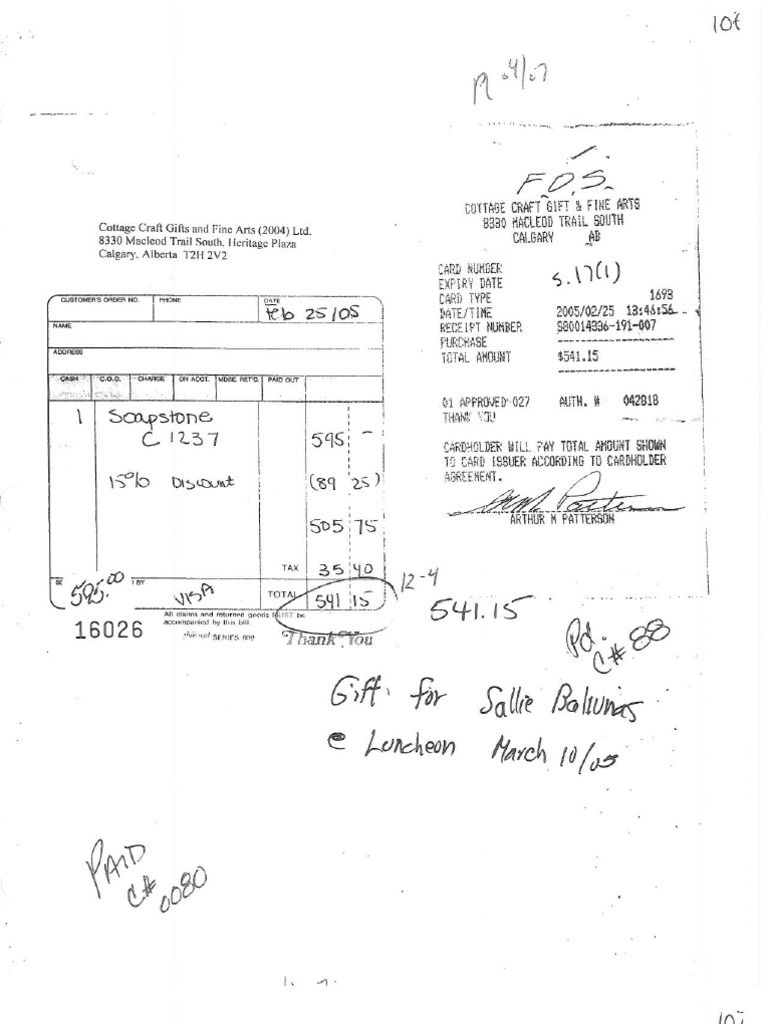 F.O.S.
COTTAGE CRAFT GIFT & FINE ARTS
8330 MACLEOD TRAIL SOUTH
CALGARY AB
CARD NUMBER
EXPIRY DATE
s.17(1)
CARD TYPE 1693
DATE/TIME 2005/02/25 13:46:56
RECEIPT NUMBER S80014336-191-007
PURCHASE
TOTAL AMOUNT $541.15
01 APPROVED-027 AUTH. # 042818
THANK YOU
CARDHOLDER WILL PAY TOTAL AMOUNT SHOWN
TO CARD ISSUER ACCORDING TO CARDHOLDER
AGREEMENT.
ARTHUR M PATTERSON
Cottage Craft Gifts and Fine Arts (2004) Ltd.
8330 Macleod Trail South, Heritage Plaza
Calgary, Alberta T2H 2V2
CUSTOMER'S ORDER NO. PHONE DATE
Feb 25/05
NAME
ADDRESS
CASH C.O.D. CHARGE ON ACCT. MDSE. RET'D. PAID OUT
1 Soapstone
C 1237 595 -
15% Discount (89 25)
505 75
TAX 35 40
595.00 BY VISA TOTAL 541 15
12-4
All claims and returned goods MUST be
accompanied by this bill.
16026 SERIES 609 Thank You
541.15
Pd. C# 88
Gift for Sallie Baliunas
@ Luncheon March 10/05
PAID
C# 0080